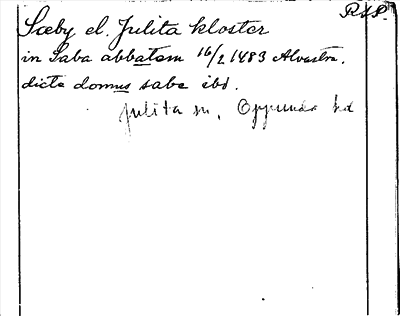 RAP.
Sæby el. Julita kloster
in Saba abbatem 16/2 1483 Alvastra.
dicte domus sabe ibd.
Julita sn, Oppunda hd